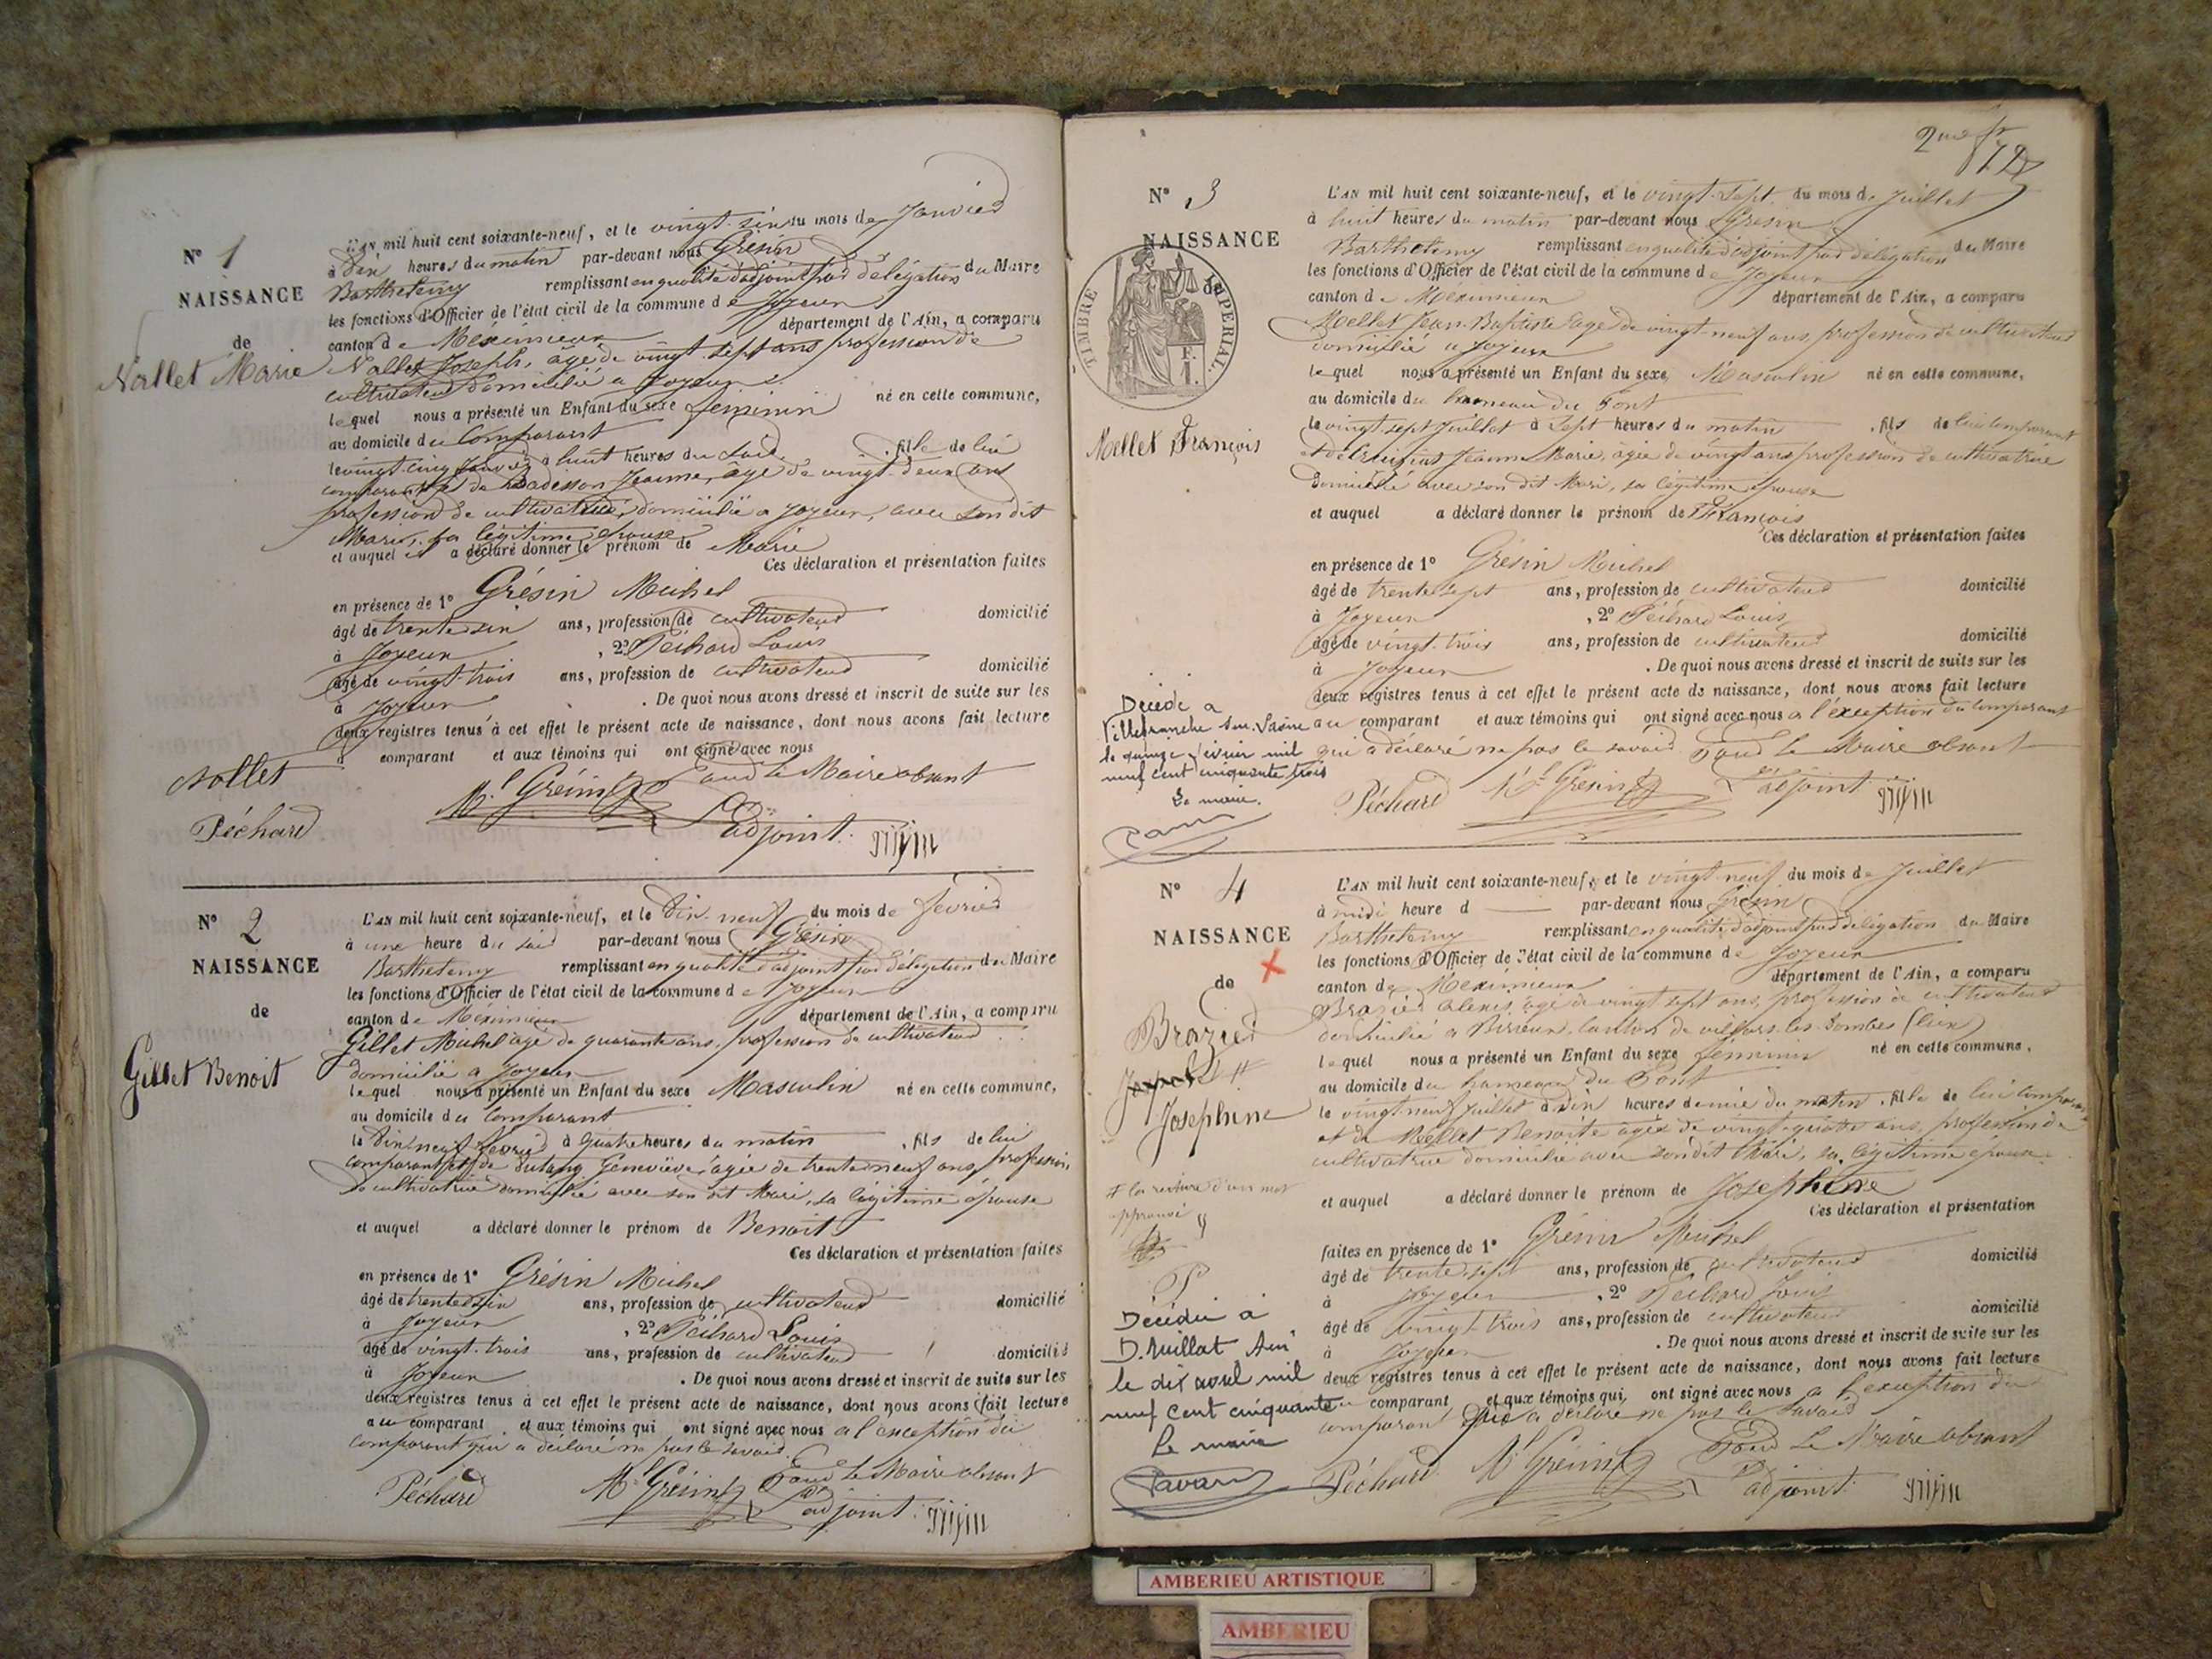 N° 1
NAISSANCE
de
Nallet Marie
L'AN mil huit cent soixante-neuf, et le vingt-six du mois de Janvier
à dix heures du matin par-devant nous Grésin
Barthelemy remplissant en qualité d'adjoint par délégation du Maire
les fonctions d'Officier de l'état civil de la commune de Joyeux
canton de Méximieux département de l'Ain, a comparu
Nallet Joseph, âgé de vingt-sept ans profession de
cultivateur domicilié a Joyeux
lequel nous a présenté un Enfant du sexe féminin né en cette commune,
au domicile du Comparant
le vingt-cinq Janvier à huit heures du soir, fille de lui
comparant et de Jeanne, âgé de vingt-deux ans
profession de cultivatrice, domicilié a Joyeux, avec son dit
Mari, sa légitime épouse
et auquel il a déclaré donner le prénom de Marie
Ces déclaration et présentation faites
en présence de 1° Grésin Michel
âgé de trente-six ans, profession de cultivateur domicilié
à Joyeux, 2° Péchard Louis
âgé de vingt-trois ans, profession de cultivateur domicilié
à Joyeux. De quoi nous avons dressé et inscrit de suite sur les
deux registres tenus à cet effet le présent acte de naissance, dont nous avons fait lecture
comparant et aux témoins qui ont signé avec nous
Nallet Pour le Maire absent
Péchard Ml Grésin L'adjoint
N° 2
NAISSANCE
de
Gillet Benoit
L'AN mil huit cent soixante-neuf, et le dix-neuf du mois de février
à une heure du soir par-devant nous Grésin
Barthelemy remplissant en qualité d'adjoint par délégation du Maire
les fonctions d'Officier de l'état civil de la commune de Joyeux
canton de Méximieux département de l'Ain, a comparu
Gillet Michel âgé de quarante ans, profession de cultivateur
domicilié a Joyeux
lequel nous a présenté un Enfant du sexe Masculin né en cette commune,
au domicile du Comparant
le dix neuf février à quatre heures du matin, fils de lui
comparant et de Dutang Geneviève, âgée de trente neuf ans, profession
de cultivatrice domicilié avec son dit Mari, sa légitime épouse
et auquel a déclaré donner le prénom de Benoit
Ces déclaration et présentation faites
en présence de 1° Grésin Michel
âgé de trente six ans, profession de cultivateur domicilié
à Joyeux, 2° Péchard Louis
âgé de vingt-trois ans, profession de cultivateur domicilié
à Joyeux. De quoi nous avons dressé et inscrit de suite sur les
deux registres tenus à cet effet le présent acte de naissance, dont nous avons fait lecture
au comparant et aux témoins qui ont signé avec nous a l'exception du
comparant qui a déclaré ne pas le savoir.
Pour le Maire absent
Péchard Ml Grésin L'adjoint
12
N° 3
NAISSANCE
de
TIMBRE IMPERIAL.
Mellet François
L'AN mil huit cent soixante-neuf, et le vingt-sept du mois de Juillet
à huit heures du matin par-devant nous Grésin
Barthelemy remplissant en qualité d'adjoint par délégation du Maire
les fonctions d'Officier de l'état civil de la commune de Joyeux
canton de Méximieux département de l'Ain, a comparu
Mellet Jean-Baptiste âgé de vingt-neuf ans, profession de cultivateur
domicilié a Joyeux
lequel nous a présenté un Enfant du sexe Masculin né en cette commune,
au domicile du hameau du Pont
le vingt-sept Juillet à sept heures du matin, fils de lui comparant
et de Jeanne Marie, âgée de vingt ans profession de cultivatrice
domicilié avec son dit Mari, sa légitime épouse
et auquel a déclaré donner le prénom de François
Ces déclaration et présentation faites
en présence de 1° Grésin Michel
âgé de trente-sept ans, profession de cultivateur domicilié
à Joyeux, 2° Péchard Louis
âgé de vingt-trois ans, profession de cultivateur domicilié
à Joyeux. De quoi nous avons dressé et inscrit de suite sur les
deux registres tenus à cet effet le présent acte de naissance, dont nous avons fait lecture
au comparant et aux témoins qui ont signé avec nous a l'exception du comparant
qui a déclaré ne pas le savoir. Pour le Maire absent
Péchard Ml Grésin L'adjoint
Décédé a
Villefranche sur Saône
le quinze février mil
neuf cent cinquante trois
Le maire.
N° 4
NAISSANCE
de
Brazier
Joséphine
# la rature d'un mot
approuvé
L'AN mil huit cent soixante-neuf, et le vingt-neuf du mois de Juillet
à midi heure d par-devant nous Grésin
Barthelemy remplissant en qualité d'adjoint par délégation du Maire
les fonctions d'Officier de l'état civil de la commune de Joyeux
canton de Méximieux département de l'Ain, a comparu
Brazier Alexis, âgé de vingt sept ans, profession de cultivateur
domicilié a Birieux, canton de villars-les-Dombes (Ain)
lequel nous a présenté un Enfant du sexe féminin né en cette commune,
au domicile du hameau du Pont
le vingt-neuf Juillet à dix heures demie du matin, fille de lui comparant
et de Mellet Benoite âgée de vingt-quatre ans, profession de
cultivatrice domicilié avec son dit Mari, sa légitime épouse
et auquel a déclaré donner le prénom de Joséphine
Ces déclaration et présentation
faites en présence de 1° Grésin Michel
âgé de trente-sept ans, profession de cultivateur domicilié
à Joyeux, 2° Péchard Louis
âgé de vingt-trois ans, profession de cultivateur domicilié
à Joyeux. De quoi nous avons dressé et inscrit de suite sur les
deux registres tenus à cet effet le présent acte de naissance, dont nous avons fait lecture
au comparant et aux témoins qui ont signé avec nous a l'exception du
comparant qui a déclaré ne pas le savoir
Pour Le Maire absent
Péchard Ml Grésin L'adjoint
Décédée à
Druillat Ain
le dix avril mil
neuf cent cinquante
Le maire
AMBERIEU ARTISTIQUE
AMBERIEU